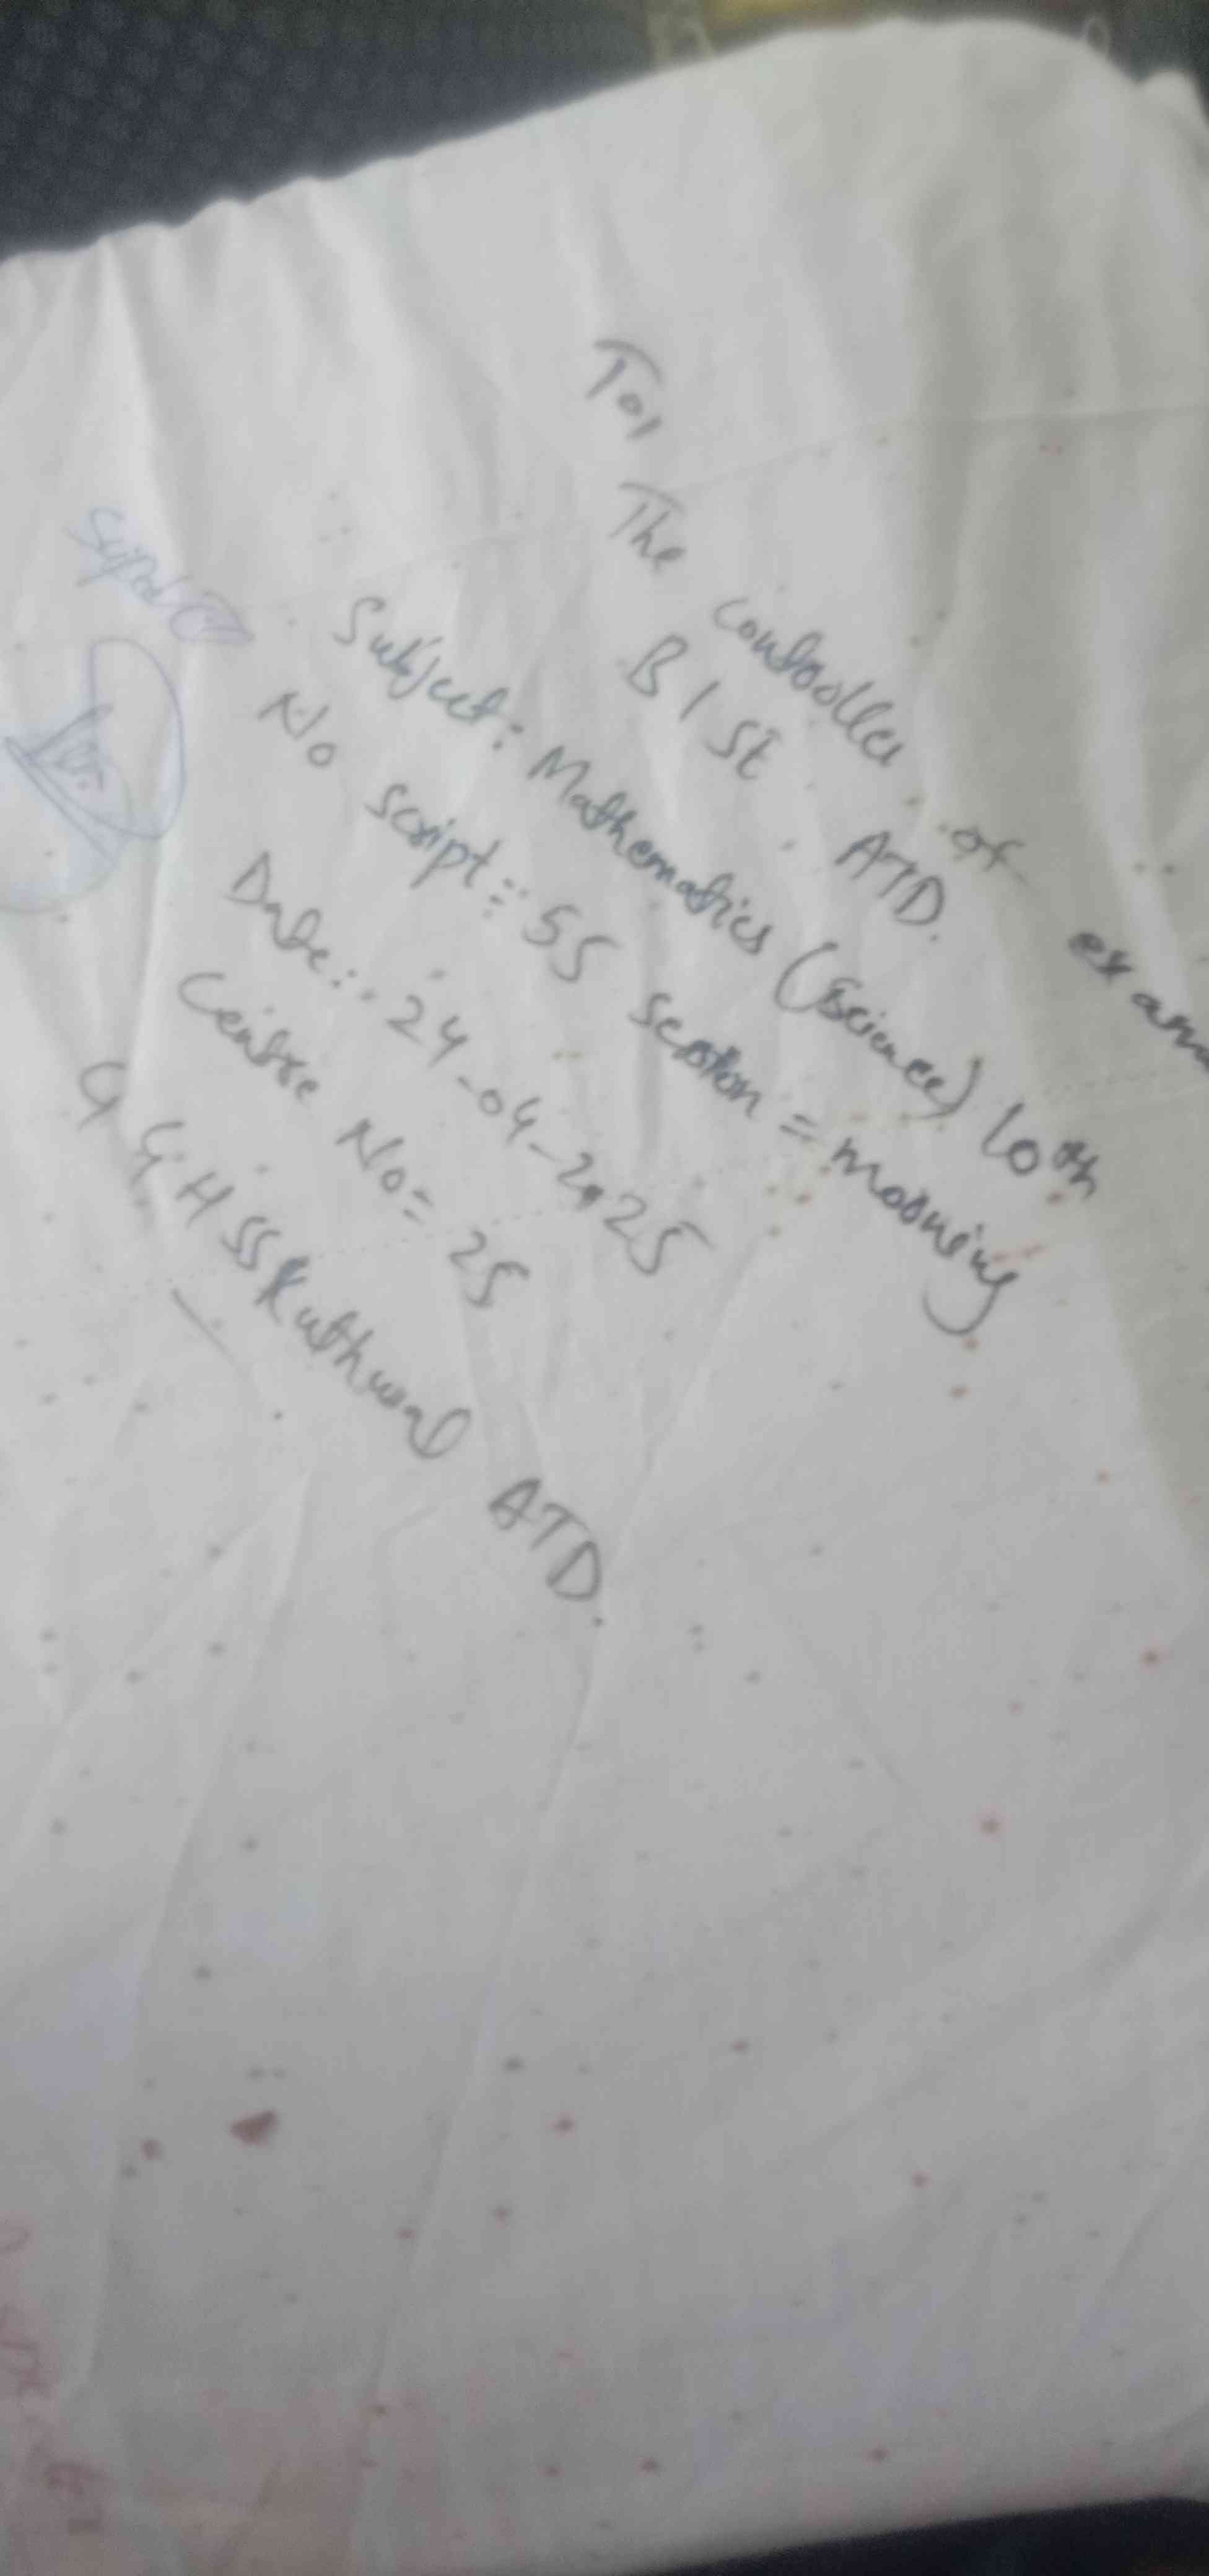 To,
The controller of exam
BISE ATD.
Subject: Mathematics (Science) 10th
No script = 55 session = morning
Date: 24-04-2025
Centre No = 25
GGHSS Kuthwal ATD.